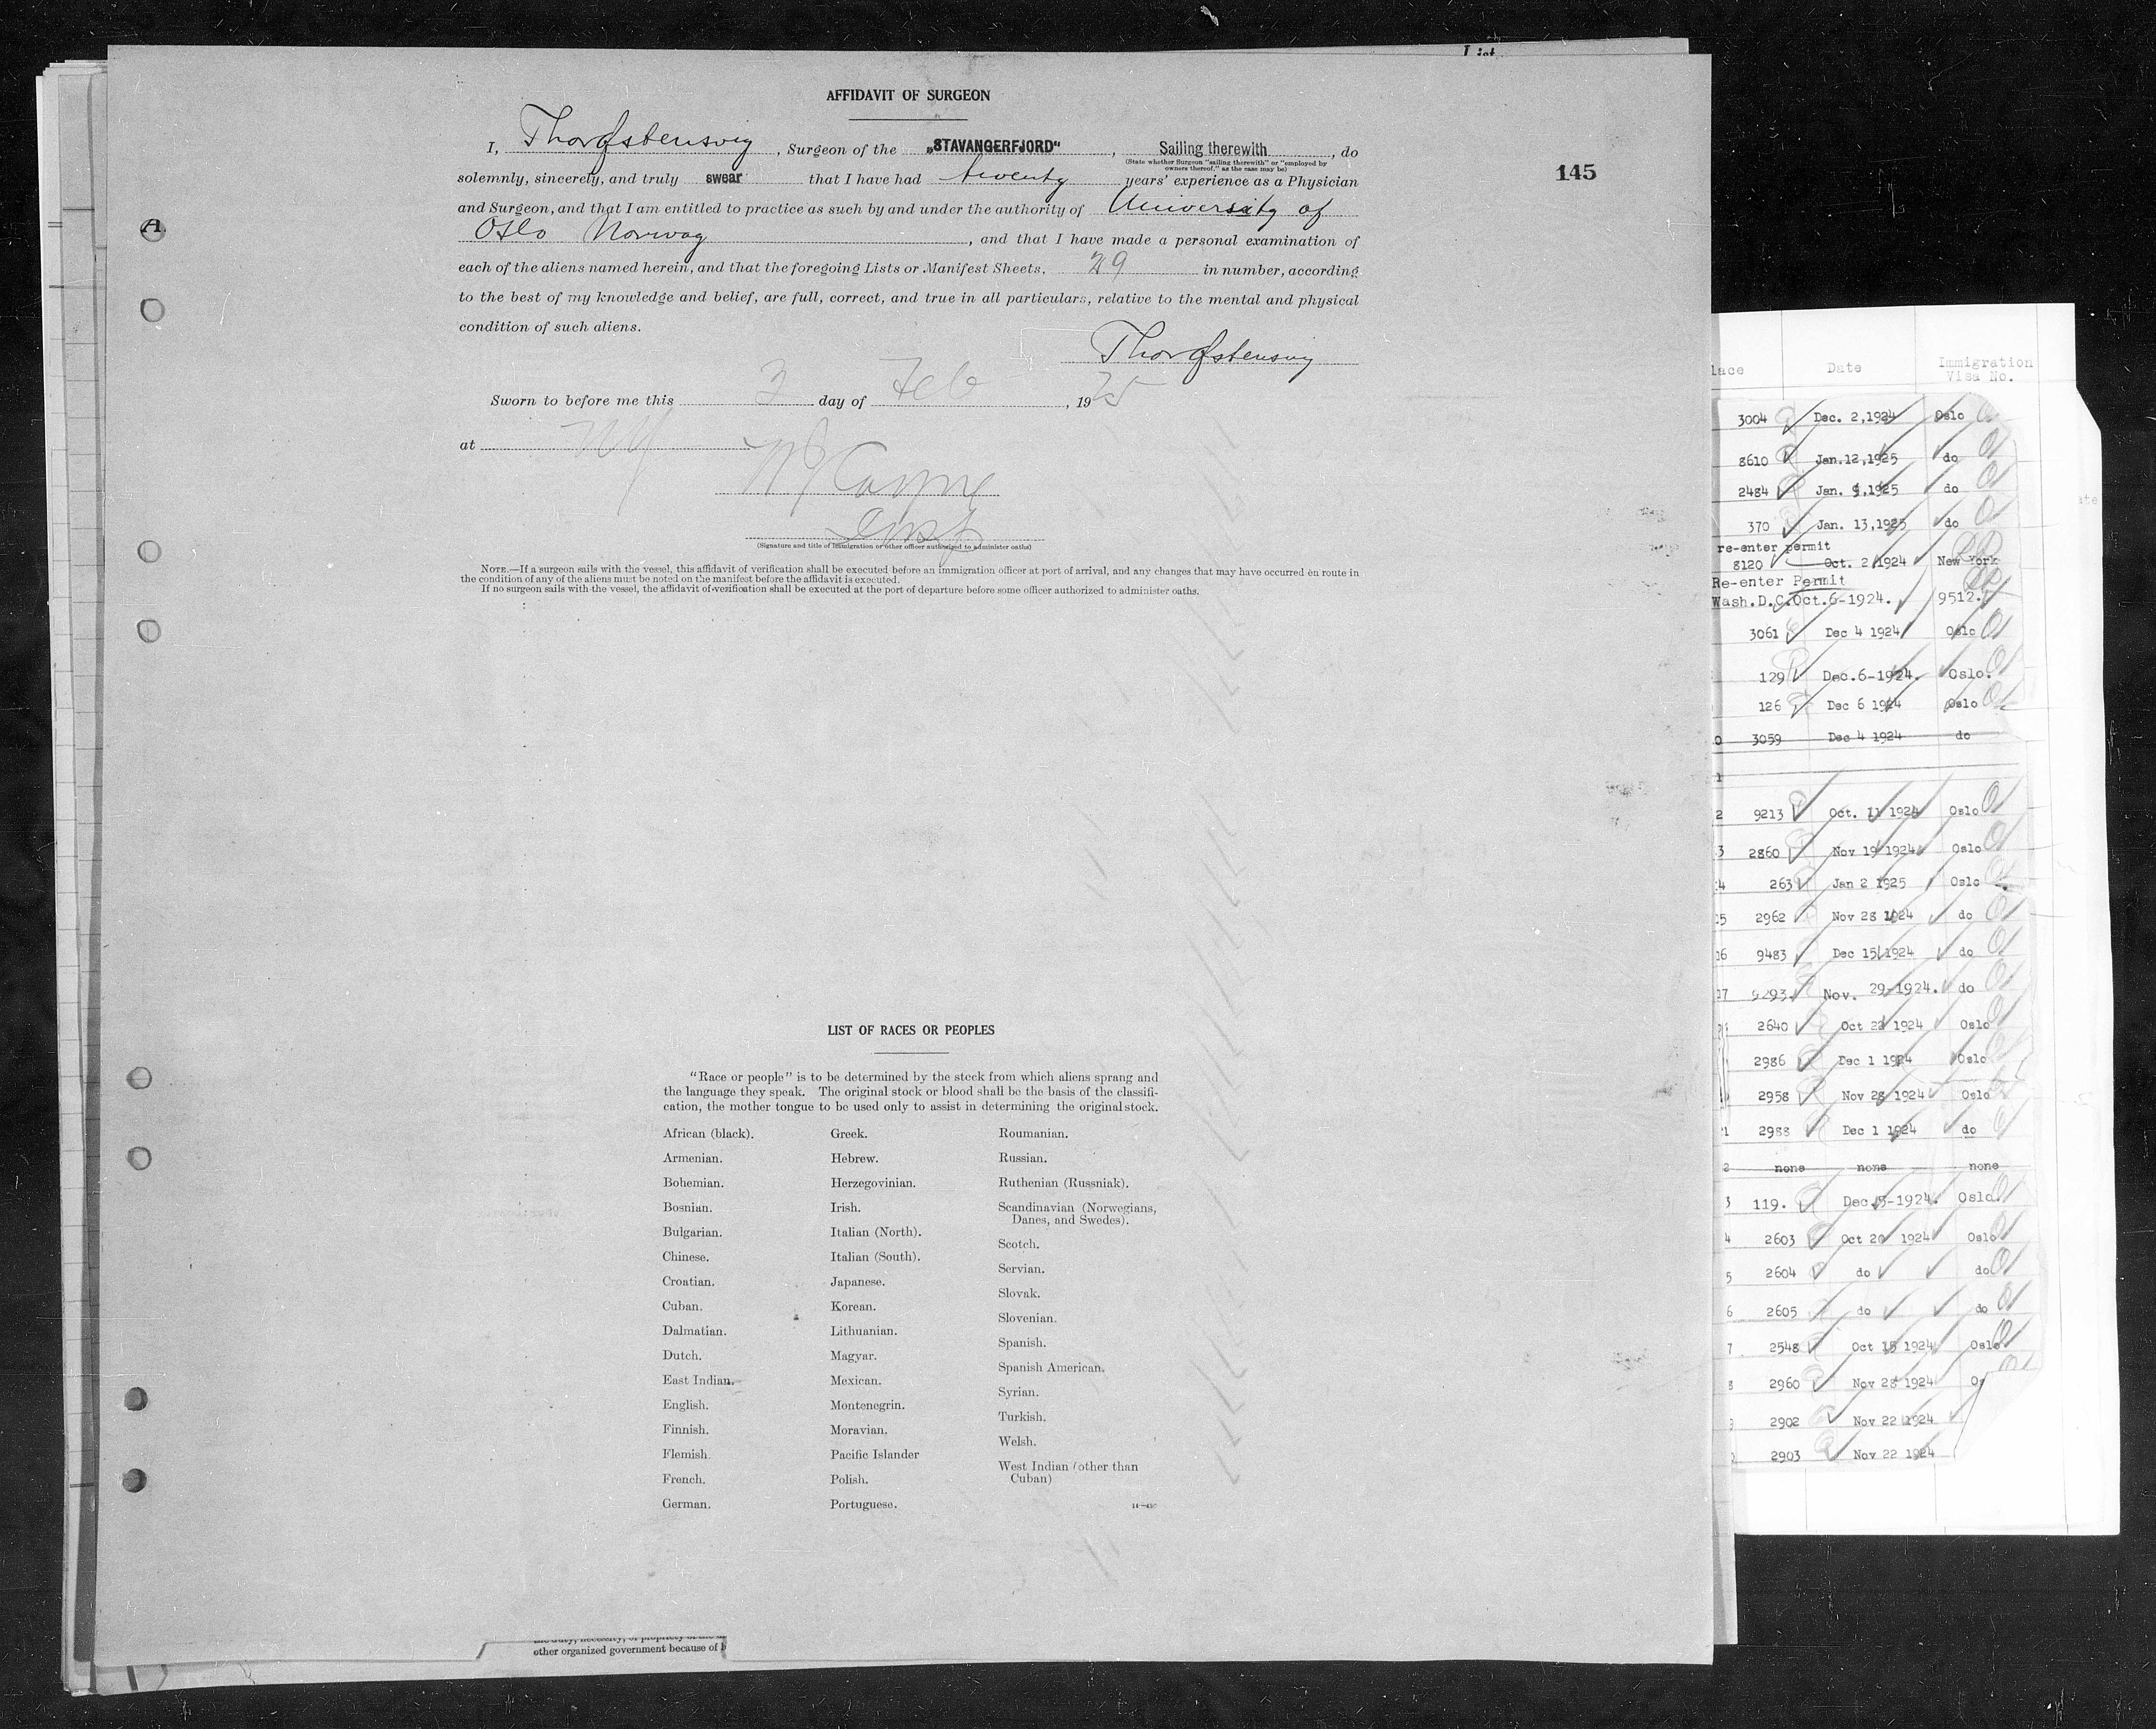 List
AFFIDAVIT OF SURGEON
I, , Surgeon of the „STAVANGERFJORD“ , Sailing therewith , do
(State whether Surgeon "sailing therewith" or "employed by
owners thereof," as the case may be)
145
solemnly, sincerely, and truly swear that I have had twenty years' experience as a Physician
and Surgeon, and that I am entitled to practice as such by and under the authority of University of
Oslo Norway , and that I have made a personal examination of
each of the aliens named herein, and that the foregoing Lists or Manifest Sheets, 29 in number, according
to the best of my knowledge and belief, are full, correct, and true in all particulars, relative to the mental and physical
condition of such aliens.
Sworn to before me this 3 day of Feb , 1925
at NY
Insp
(Signature and title of immigration or other officer authorized to administer oaths)
NOTE.—If a surgeon sails with the vessel, this affidavit of verification shall be executed before an immigration officer at port of arrival, and any changes that may have occurred en route in
the condition of any of the aliens must be noted on the manifest before the affidavit is executed.
If no surgeon sails with the vessel, the affidavit of verification shall be executed at the port of departure before some officer authorized to administer oaths.
LIST OF RACES OR PEOPLES
"Race or people" is to be determined by the stock from which aliens sprang and
the language they speak. The original stock or blood shall be the basis of the classifi-
cation, the mother tongue to be used only to assist in determining the original stock.
African (black).
Armenian.
Bohemian.
Bosnian.
Bulgarian.
Chinese.
Croatian.
Cuban.
Dalmatian.
Dutch.
East Indian.
English.
Finnish.
Flemish.
French.
German.
Greek.
Hebrew.
Herzegovinian.
Irish.
Italian (North).
Italian (South).
Japanese.
Korean.
Lithuanian.
Magyar.
Mexican.
Montenegrin.
Moravian.
Pacific Islander
Polish.
Portuguese.
Roumanian.
Russian.
Ruthenian (Russniak).
Scandinavian (Norwegians,
Danes, and Swedes).
Scotch.
Servian.
Slovak.
Slovenian.
Spanish.
Spanish American.
Syrian.
Turkish.
Welsh.
West Indian (other than
Cuban)
other organized government because of
lace Date Immigration
Visa No.
3004 Dec. 2,1924 Oslo
8610 Jan.12,1925 do
2484 Jan. 9,1925 do
370 Jan. 13,1925 do
re-enter permit
8120 Oct. 2 1924 New York
Re-enter Permit
Wash.D.C.Oct.6-1924. 9512.
3061 Dec 4 1924 Oslo
129 Dec.6-1924. Oslo.
126 Dec 6 1924 Oslo
0 3059 Dec 4 1924 do
1
2 9213 Oct. 11 1924 Oslo
3 2860 Nov 19 1924 Oslo
4 263 Jan 2 1925 Oslo
15 2962 Nov 28 1924 do
16 9483 Dec 15 1924 do
17 9293. Nov. 29-1924. do
2640 Oct 22 1924 Oslo
2986 Dec 1 1924 Oslo
2958 Nov 28 1924 Oslo
1 2988 Dec 1 1924 do
2 none none none
3 119. Dec.5-1924. Oslo.
4 2603 Oct 20 1924 Oslo
5 2604 do do
6 2605 do do
7 2548 Oct 15 1924 Oslo
8 2960 Nov 28 1924 Os
2902 Nov 22 1924
2903 Nov 22 1924